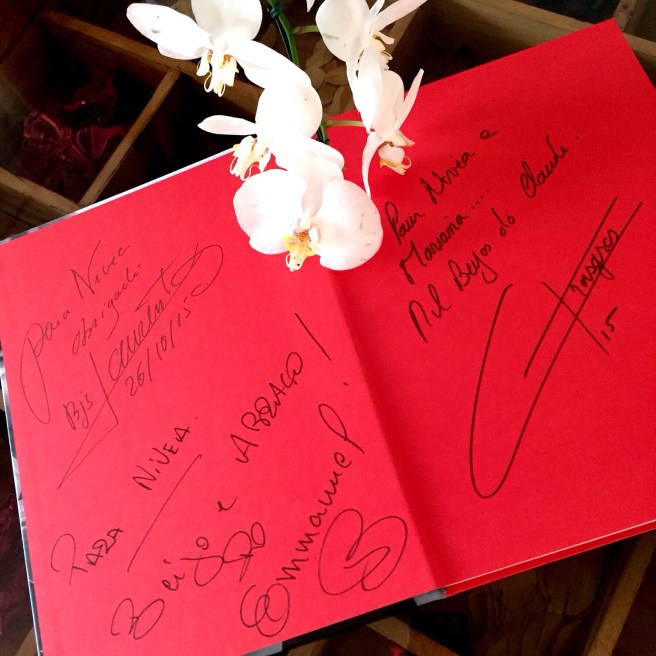 Para Nivea
obrigada
Bjs
26/10/15
PARA NiVEA.
Beijo e ABRAÇO!
Emmanuel
Para Nivea e
Mariana....
Mil Beijos do Claude...
15